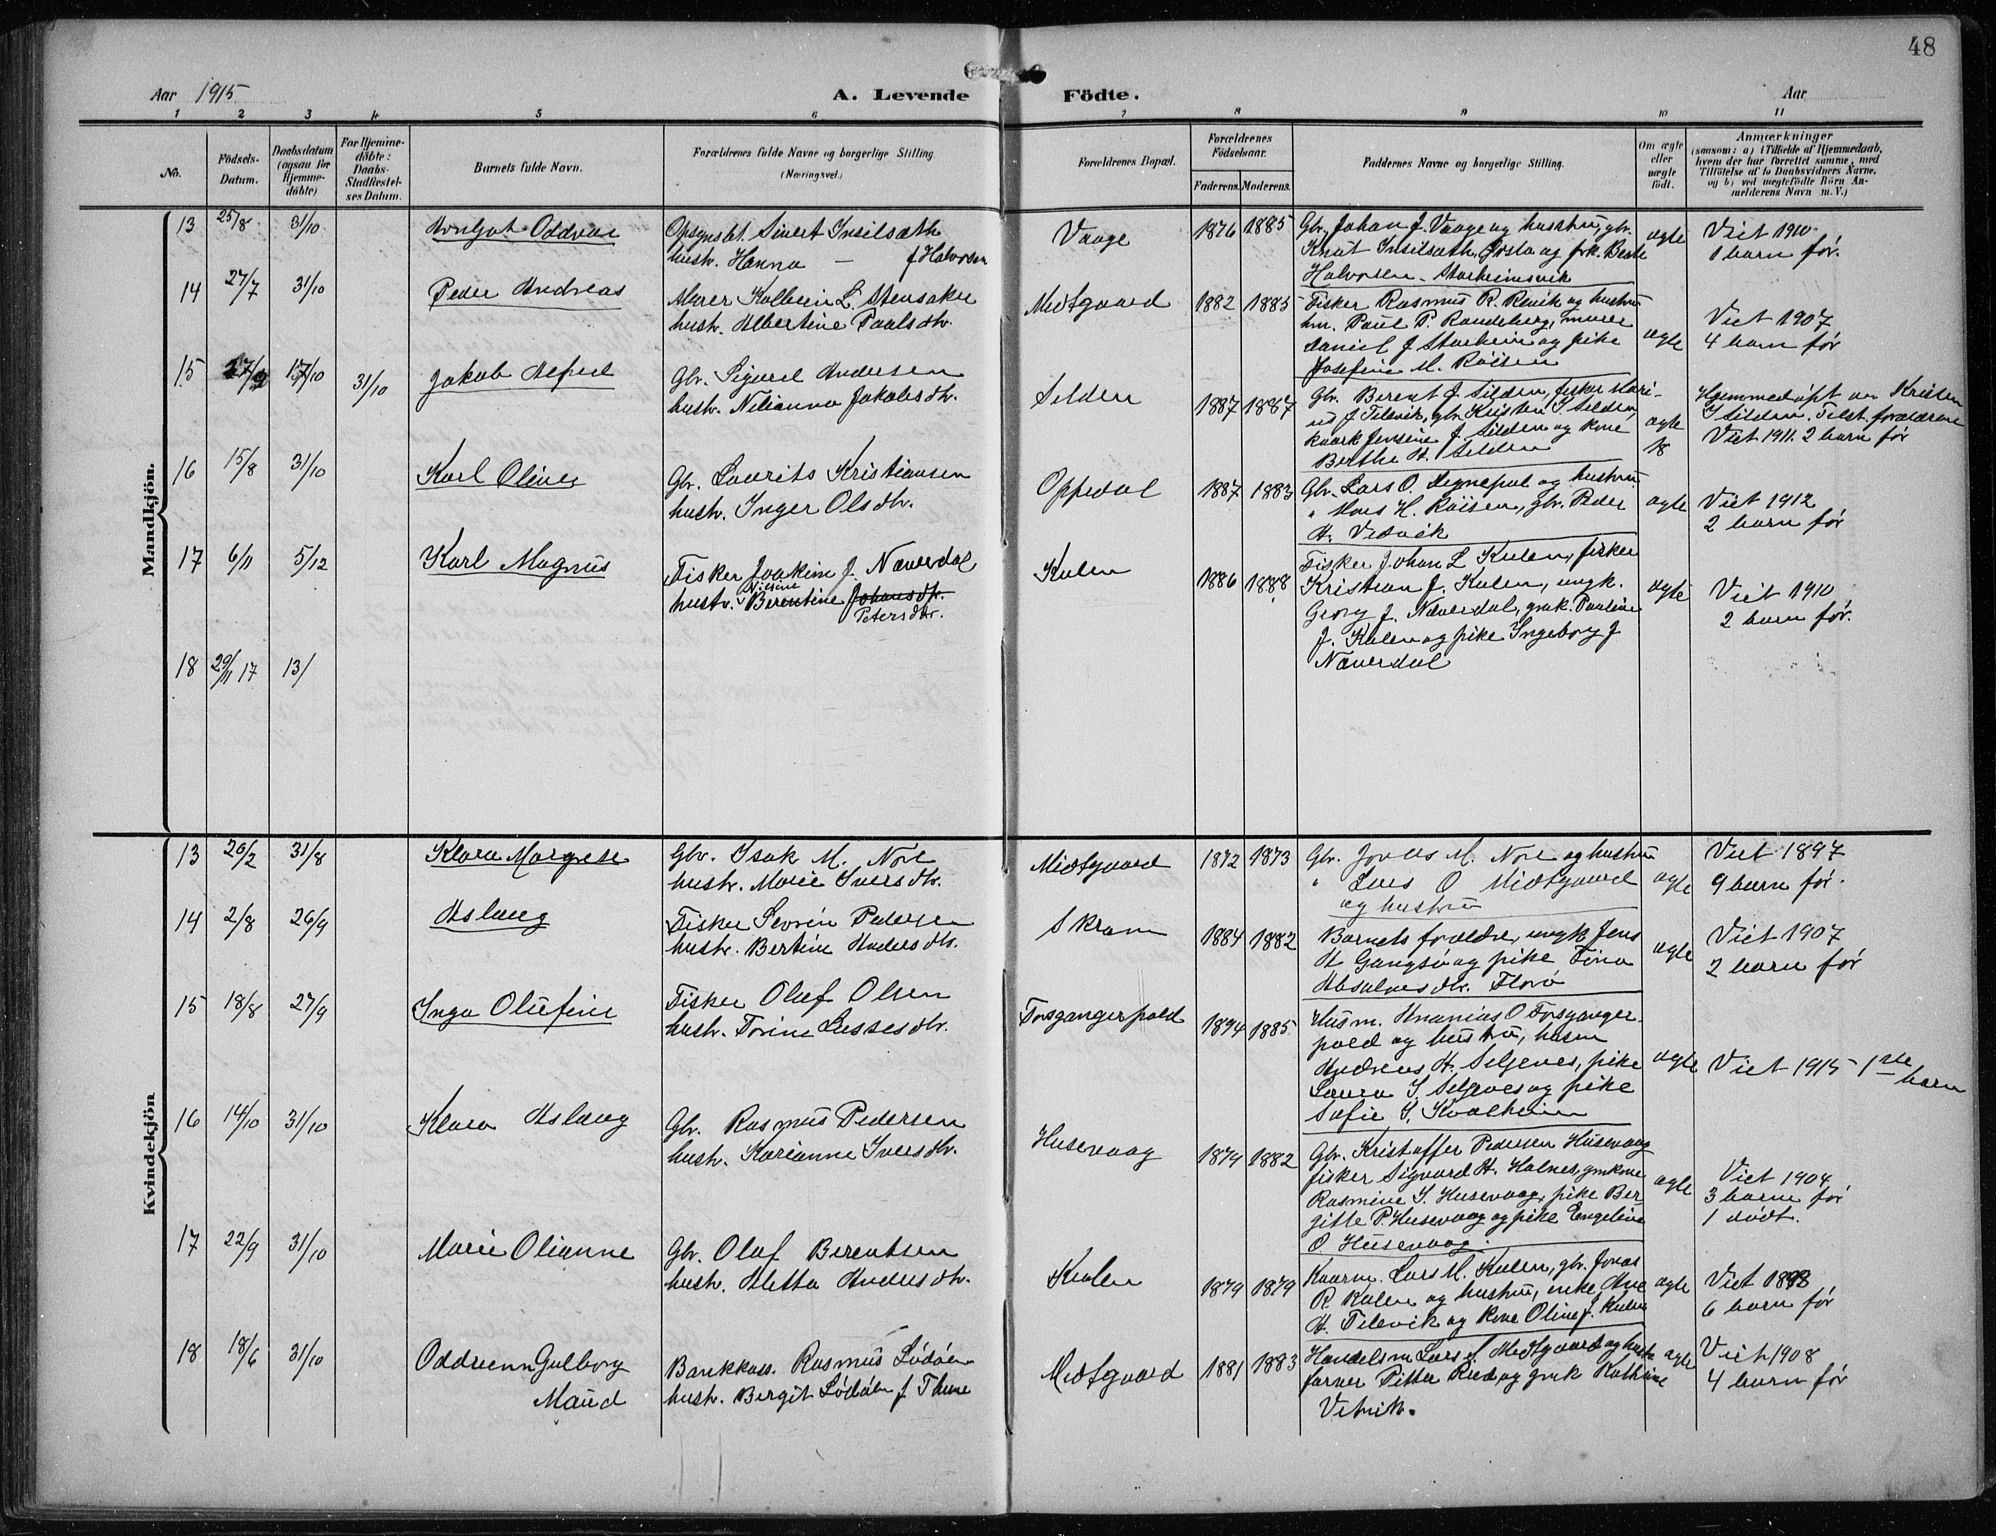 48
Aar 1915
A. Levende Födte.
Aar
1 2 3 4 5 6 7 8 9 10 11
No.
Födsels-
Datum.
Daabsdatum
(ogsaa for
Hjemme-
döbte)
For Hjemme-
döbte:
Daabs-
Stadfæstel-
ses Datum.
Barnets fulde Navn.
Forældrenes fulde Navne og borgerlige Stilling
(Næringsvei.)
Forældrenes Bopæl.
Forældrenes
Födselsaar.
Faderens. Moderens.
Faddernes Navne og borgerlige Stilling.
Om ægte
eller
uægte
födt.
Anmærkninger
(saasom: a) i Tilfælde af Hjemmedaab,
hvem der har forrettet samme, med
Tilföielse af to Daabsvidners Navne,
og b) ved uægtefödte Börn An-
melderens Navn m. V.)
Mandkjön.
13 25/8 31/10 Arnljot Oddvar
Opsynsbet. Sivert Insilsæth
hustr. Hanna — f Halvorsen
Vaage 1876 1885
Gbr. Johan J. Vaage og hustru, gbr.
Knut Insilsæth, Ørsta og frk. Berte
Halvorsen - Starheimsvik
ægte
Viet 1910.
1 barn før.
14 27/7 31/10 Peder Andreas
Murer Kolbein L. Stensaker
hustr. Albertine Paulsdtr.
Midtgaard 1882 1885
Fisker Rasmus R. Revik og hustru
hm. Paul P. Raudeberg, murer
Daniel J Starheim og pike
Josefine M. Røisen
ægte
Viet 1907
4 barn før
15 27/9 17/10 31/10 Jakob Alfred
Gbr. Sigurd Andersen
hustr. Nilianna Jakobsdtr.
Silden 1887 1887
Gbr. Berent J. Silden, fisker Mari-
us J Tilevik, gbr. Kristen I Silden,
kaark Jensine J. Silden og kone
Berthe A. Silden
ægte
Hjemmedøpt av Kristen
I Silden. Tilst. forældrene
Viet 1911. 2 barn før
16 15/8 31/10 Karl Oliver
Gbr. Laurits Kristiansen
hustr. Inger Olsdtr.
Oppedal 1887 1883
Gbr. Lars O. Degnepol og hustru
" Hans H. Røisen, gbr. Peder
A. Vedvik
ægte
Viet 1912
2 barn før
17 6/11 5/12 Karl Magnus
Fisker Joakim J. Næverdal
Nilsine
hustr. Berentine Johansdtr.
Petersdtr.
Kulen 1886 1888
Fisker Johan L Kulen, fisker
Kristian J. Kulen, ungk.
Georg J. Næverdal, gmk. Pauline
J. Kulen og pike Ingeborg J
Næverdal
ægte
Viet 1910
2 barn før.
18 29/11 17 13/
Kvindekjön
13 20/2 31/8 Klara Margrete
Gbr. Isak M. Nore
hustr. Marie Iversdtr.
Midtgaard 1872 1873
Gbr. Jonas M. Nore og hustru
" Lars O Midtgaard
og hustru
ægte
Viet 1897
9 barn før.
14 2/8 26/9 Aslaug
Fisker Sevrin Pedersen
hustr. Bertine Andersdtr.
Skram 1884 1882
Barnets forældre, ungk. Jens
A Gangsø og pike Fina
Absalonsdtr. Florø
ægte
Viet 1907
2 barn før
15 18/8 27/9 Inga Olufine
Fisker Oluf Olsen
hustr. Torine Lassesdtr.
Torsgangerpold 1894 1885
Husm. Ananias O Torsganger-
pold og hustru, husm
Andreas A. Seljenes, pike
Laura I. Seljenes og pike
Sofie S. Kvalheim
ægte
Viet 1915 1ste
barn
16 14/10 31/10 Klara Aslaug
Gbr. Rasmus Pedersen
hustr. Karianne Iversdtr.
Husevaag 1879 1882
Gbr. Kristoffer Pedersen Husevaag
fisker Sigvard A. Halnes, gmkone
Rasmine I. Husevaag, pike Ber-
gitte P. Husevaag og pike Engeline
O Husevaag.
ægte
Viet 1904
3 barn før
1 dødt.
17 22/9 31/10 Marie Olianne
Gbr. Olaf Berentsen
hustr. Aletta Andersdtr.
Kulen 1879 1879
Kaarm. Lars M. Kulen, gbr. Jonas
R. Kulen og hustru, enke Ane
A. Tilevik og kone Oline J. Kulen
ægte
Viet 1898
6 barn før
18 18/6 31/10 Oddrunn Gulborg
Maud
Bankkass. Rasmus Lødøen
hustr. Bergit Lødøen f Thue
Midtgaard 1881 1883
Handelsm Lars J. Midtgaard og hustr
farver Pitter Ried, og gmk Kathrine
Vetvik.
ægte
Viet 1908
4 barn før